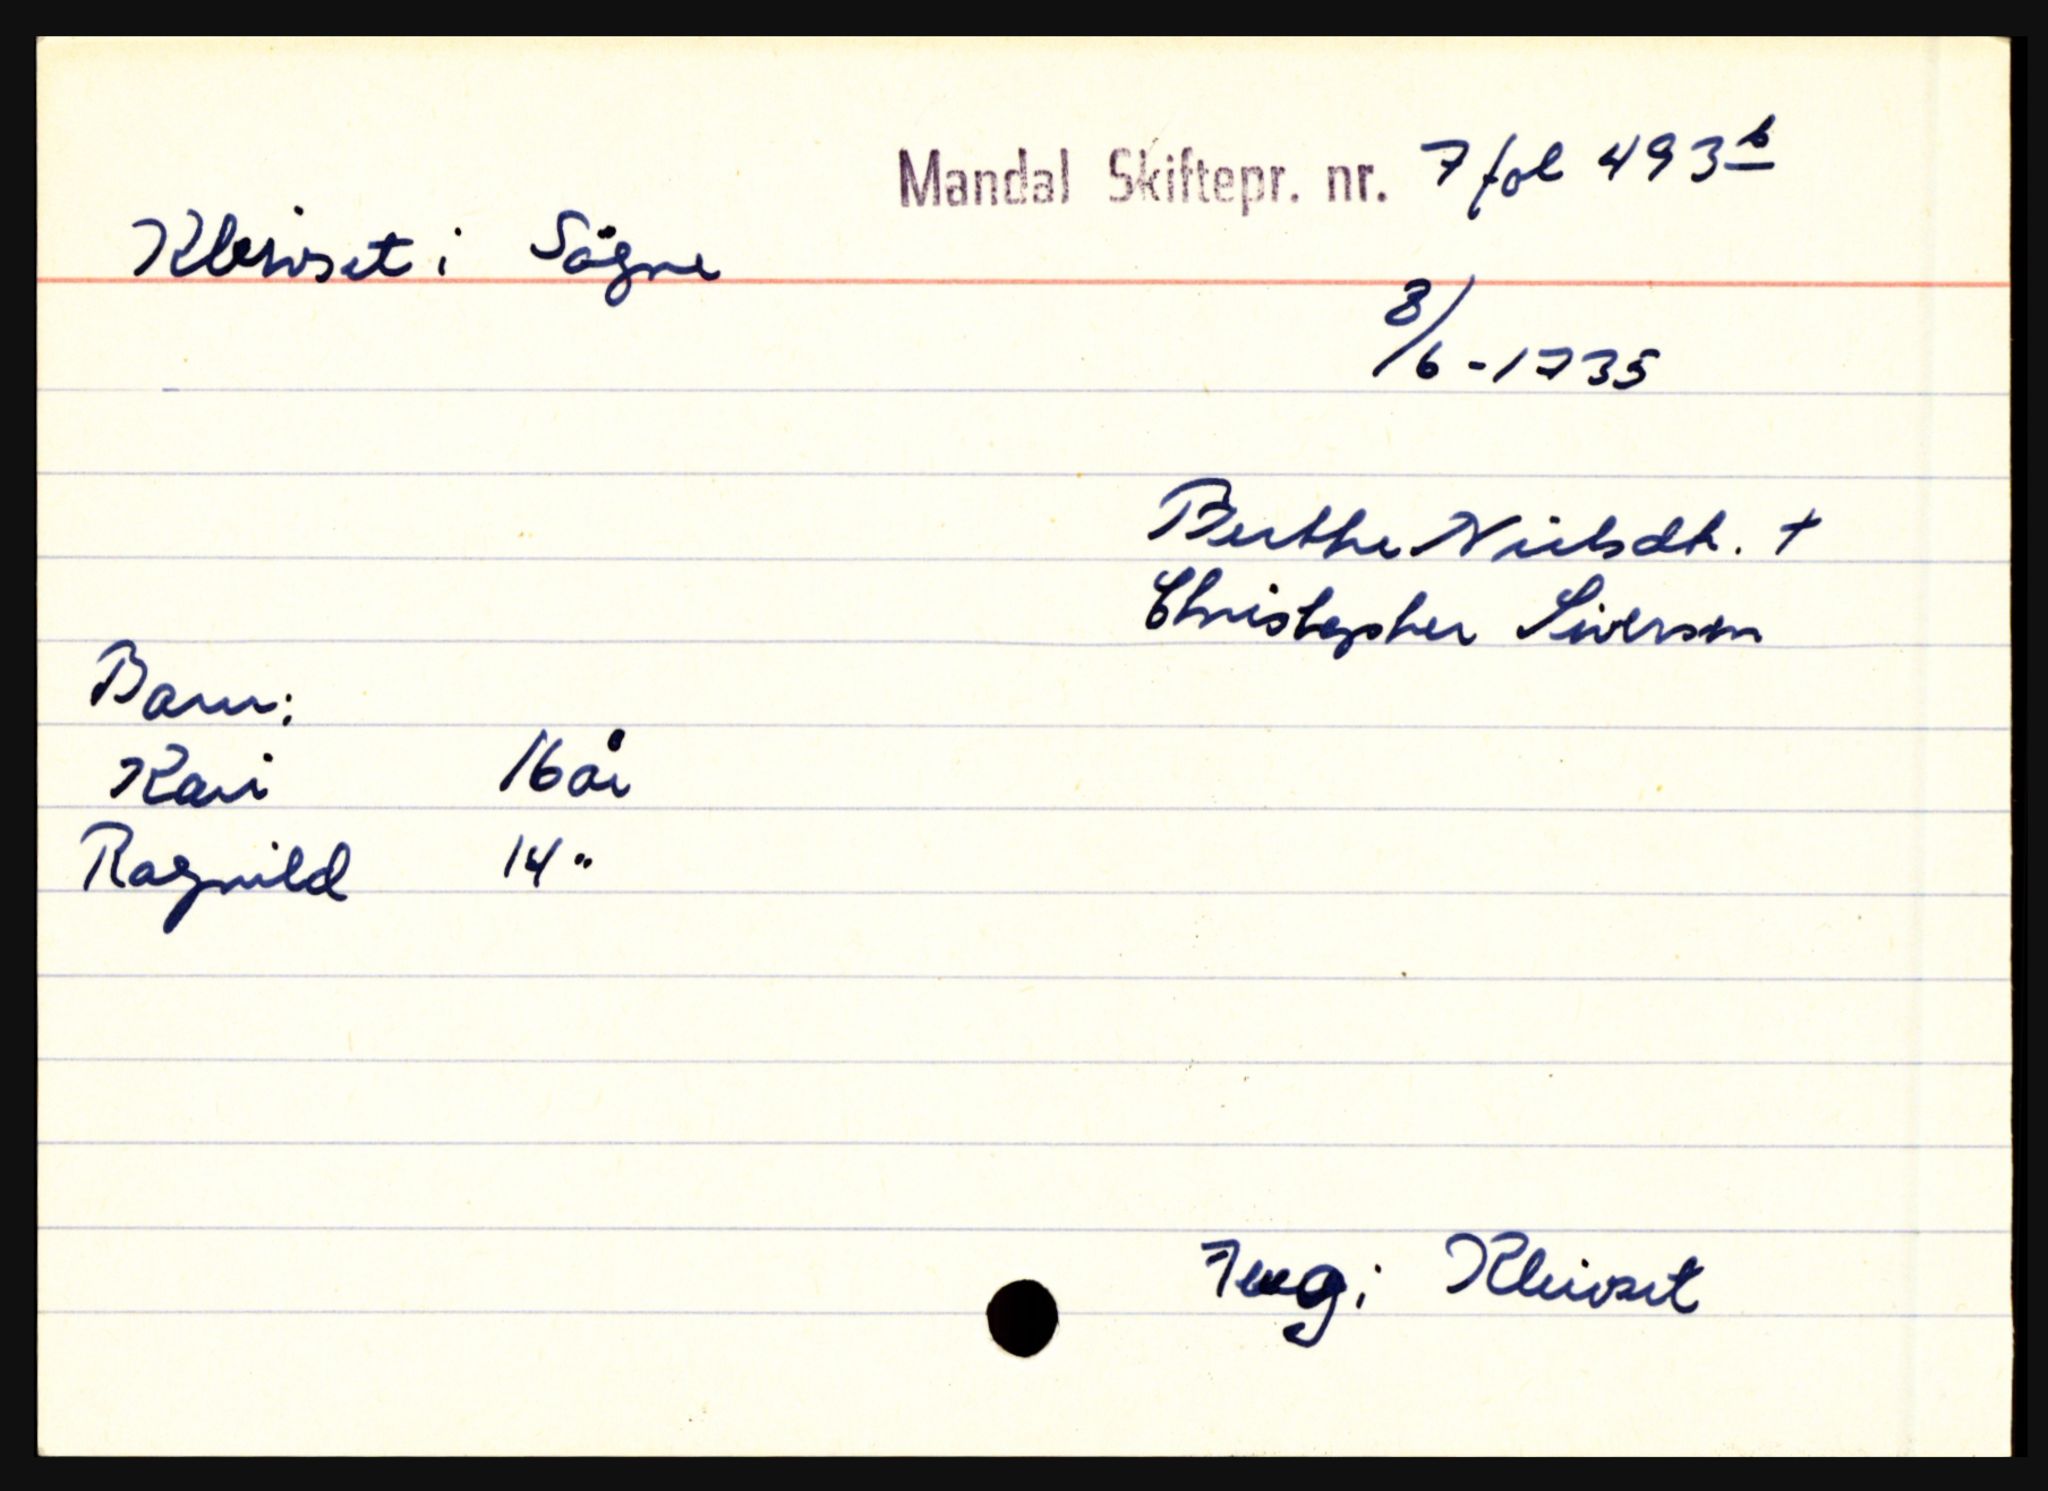 Mandal Skiftepr. nr. 7 fol 493 b
Kleivset i Sögne
8/6 - 1735
Berthe Nielsdtr. †
Christopher Siversen
Barn:
Kari 16 år
Ragnild 14 "
i Kleivset